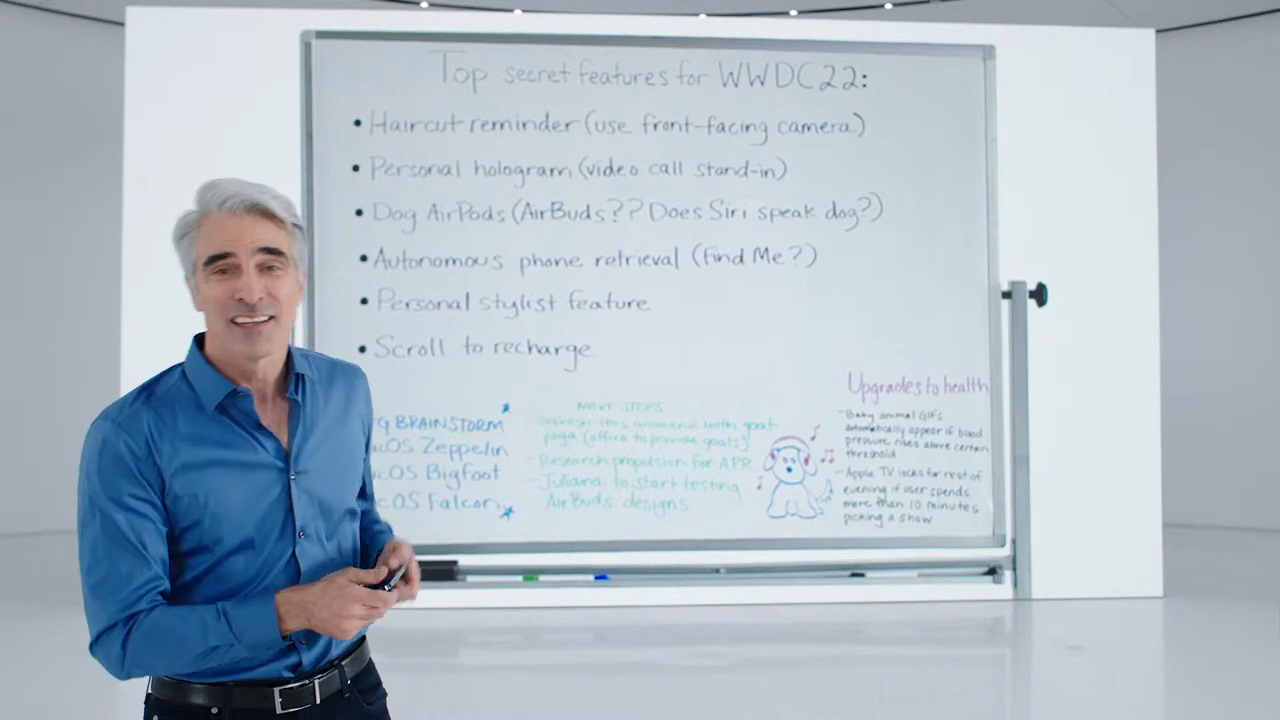 Top secret features for WWDC22:
• Haircut reminder (use front-facing camera)
• Personal hologram (video call stand-in)
• Dog AirPods (AirBuds?? Does Siri speak dog?)
• Autonomous phone retrieval (Find Me?)
• Personal stylist feature
• Scroll to recharge
BRAINSTORM
OS Zeppelin
OS Bigfoot
OS Falcon
NEXT STEPS
this weekend with goat
yoga (office to provide goats)
- Research propulsion for APR
- Juliana to start testing
AirBuds designs
Upgrades to health
- Baby animal GIFs
automatically appear if blood
pressure rises above certain
threshold
- Apple TV locks for rest of
evening if user spends
more than 10 minutes
picking a show